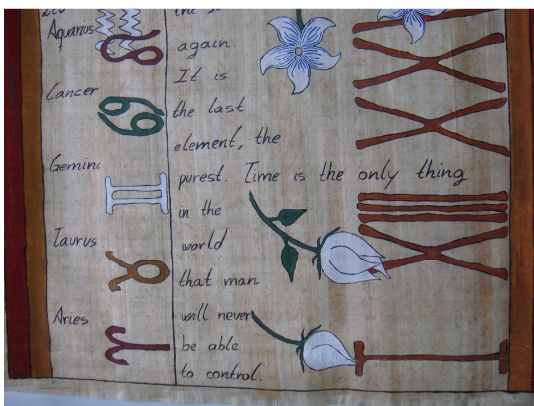 Aquarius
Cancer
Gemini
Taurus
Aries
the
again.
It is
the last
element, the
purest. Time is the only thing
in the
world
that man
will never
be able
to control.